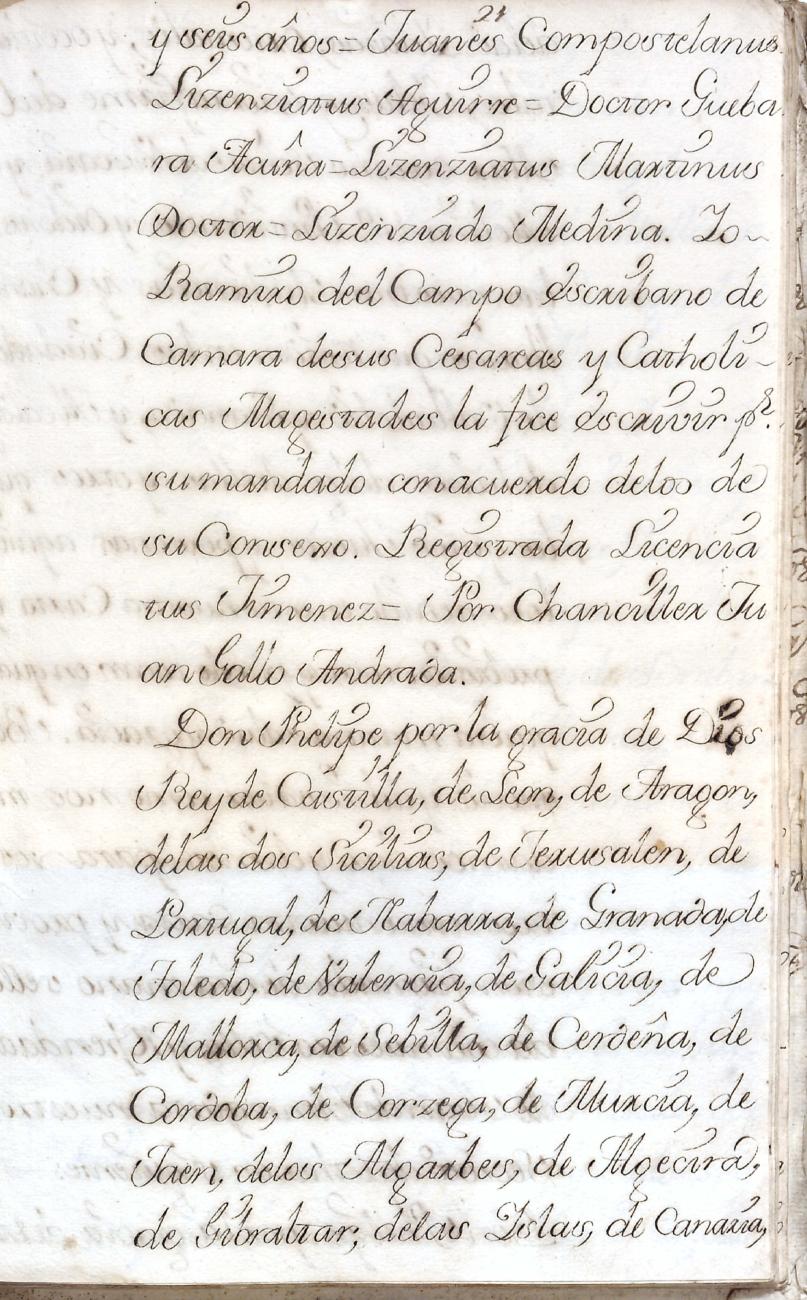 21
y seis años = Juanes Compostelanus.
Lizenziatus Aguirre = Doctor Gueba
ra Acuña = Lizenziatus Martinus
Doctor = Lizenziado Medina. Yo
Ramiro deel Campo Escribano de
Camara desus Cesareas y Catholi
cas Magestades la fice escrivir pr.
su mandado con acuerdo delos de
su Consexo. Registrada Licencia
tus Jimenez = Por Chanciller Ju
an Gallo Andrada.
Don Phelipe por la gracia de Dios
Rey de Castilla, de Leon, de Aragon,
delas dos Sicilias, de Jerusalen, de
Portugal, de Nabarra, de Granada, de
Toledo, de Valencia, de Galicia, de
Mallorca, de Sebilla, de Cerdeña, de
Cordoba, de Corzega, de Murcia, de
Jaen, delos Algarbes, de Algecira,
de Gibraltar, delas Yslas, de Canaria,